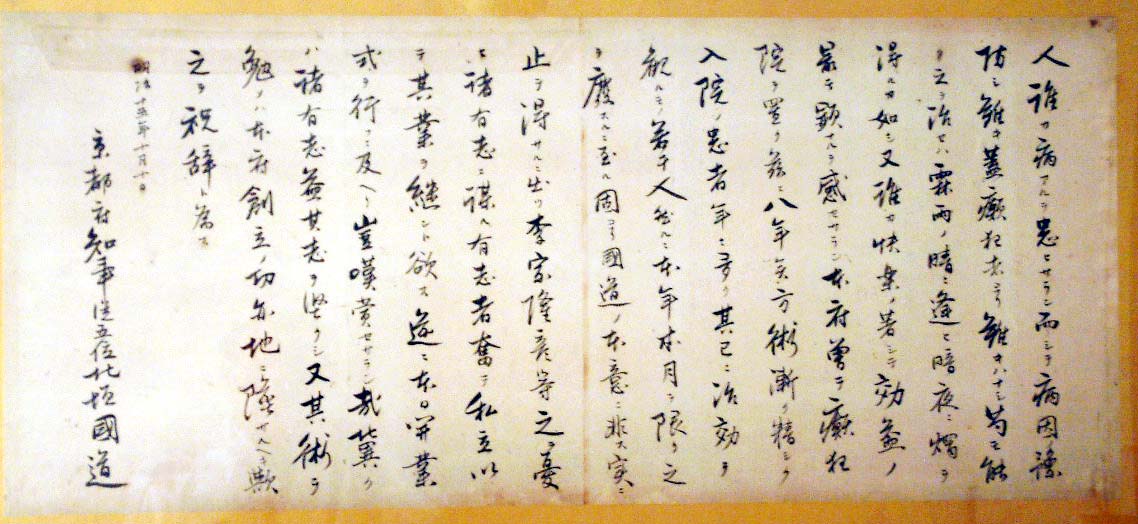 人誰カ病アルヲ思ヒサラン而シテ病因ノ豫
防シ難キ蓋癲狂ヨリ難キハナシ苟モ能
ク之ヲ治セハ霖雨ノ晴ニ逢ヒ暗夜ニ燭ヲ
得ルカ如シ又誰カ快楽ノ著シテ効益ノ
最モ顕ナルヲ感セサラン本府曽テ癲狂
院ヲ置ク茲ニ八年矣方術漸ク精シク
入院ノ患者年ニ多ク其已ニ治効ヲ
観ルモ若干人然ルニ本年本月ヲ限リ之
ヲ廃スルニ至ル固ヨリ國道ノ本意ニ非ス実ニ
止ヲ得サルニ出ツ李家隆彦等之ヲ憂
ヒ諸有志ニ謀ル有志者奮テ私立以
テ其業ヲ継ント欲ス遂ニ本日開業
式ヲ行フニ及ヘリ豈嘆賞セサラン哉冀ク
ハ諸有志益其志ヲ堅クシ又其術ヲ
勉メハ本府創立ノ功亦地ニ墜サルヘキ歟
之ヲ祝辞ト為ス
明治十五年十月十日
京都府知事従五位北垣國道